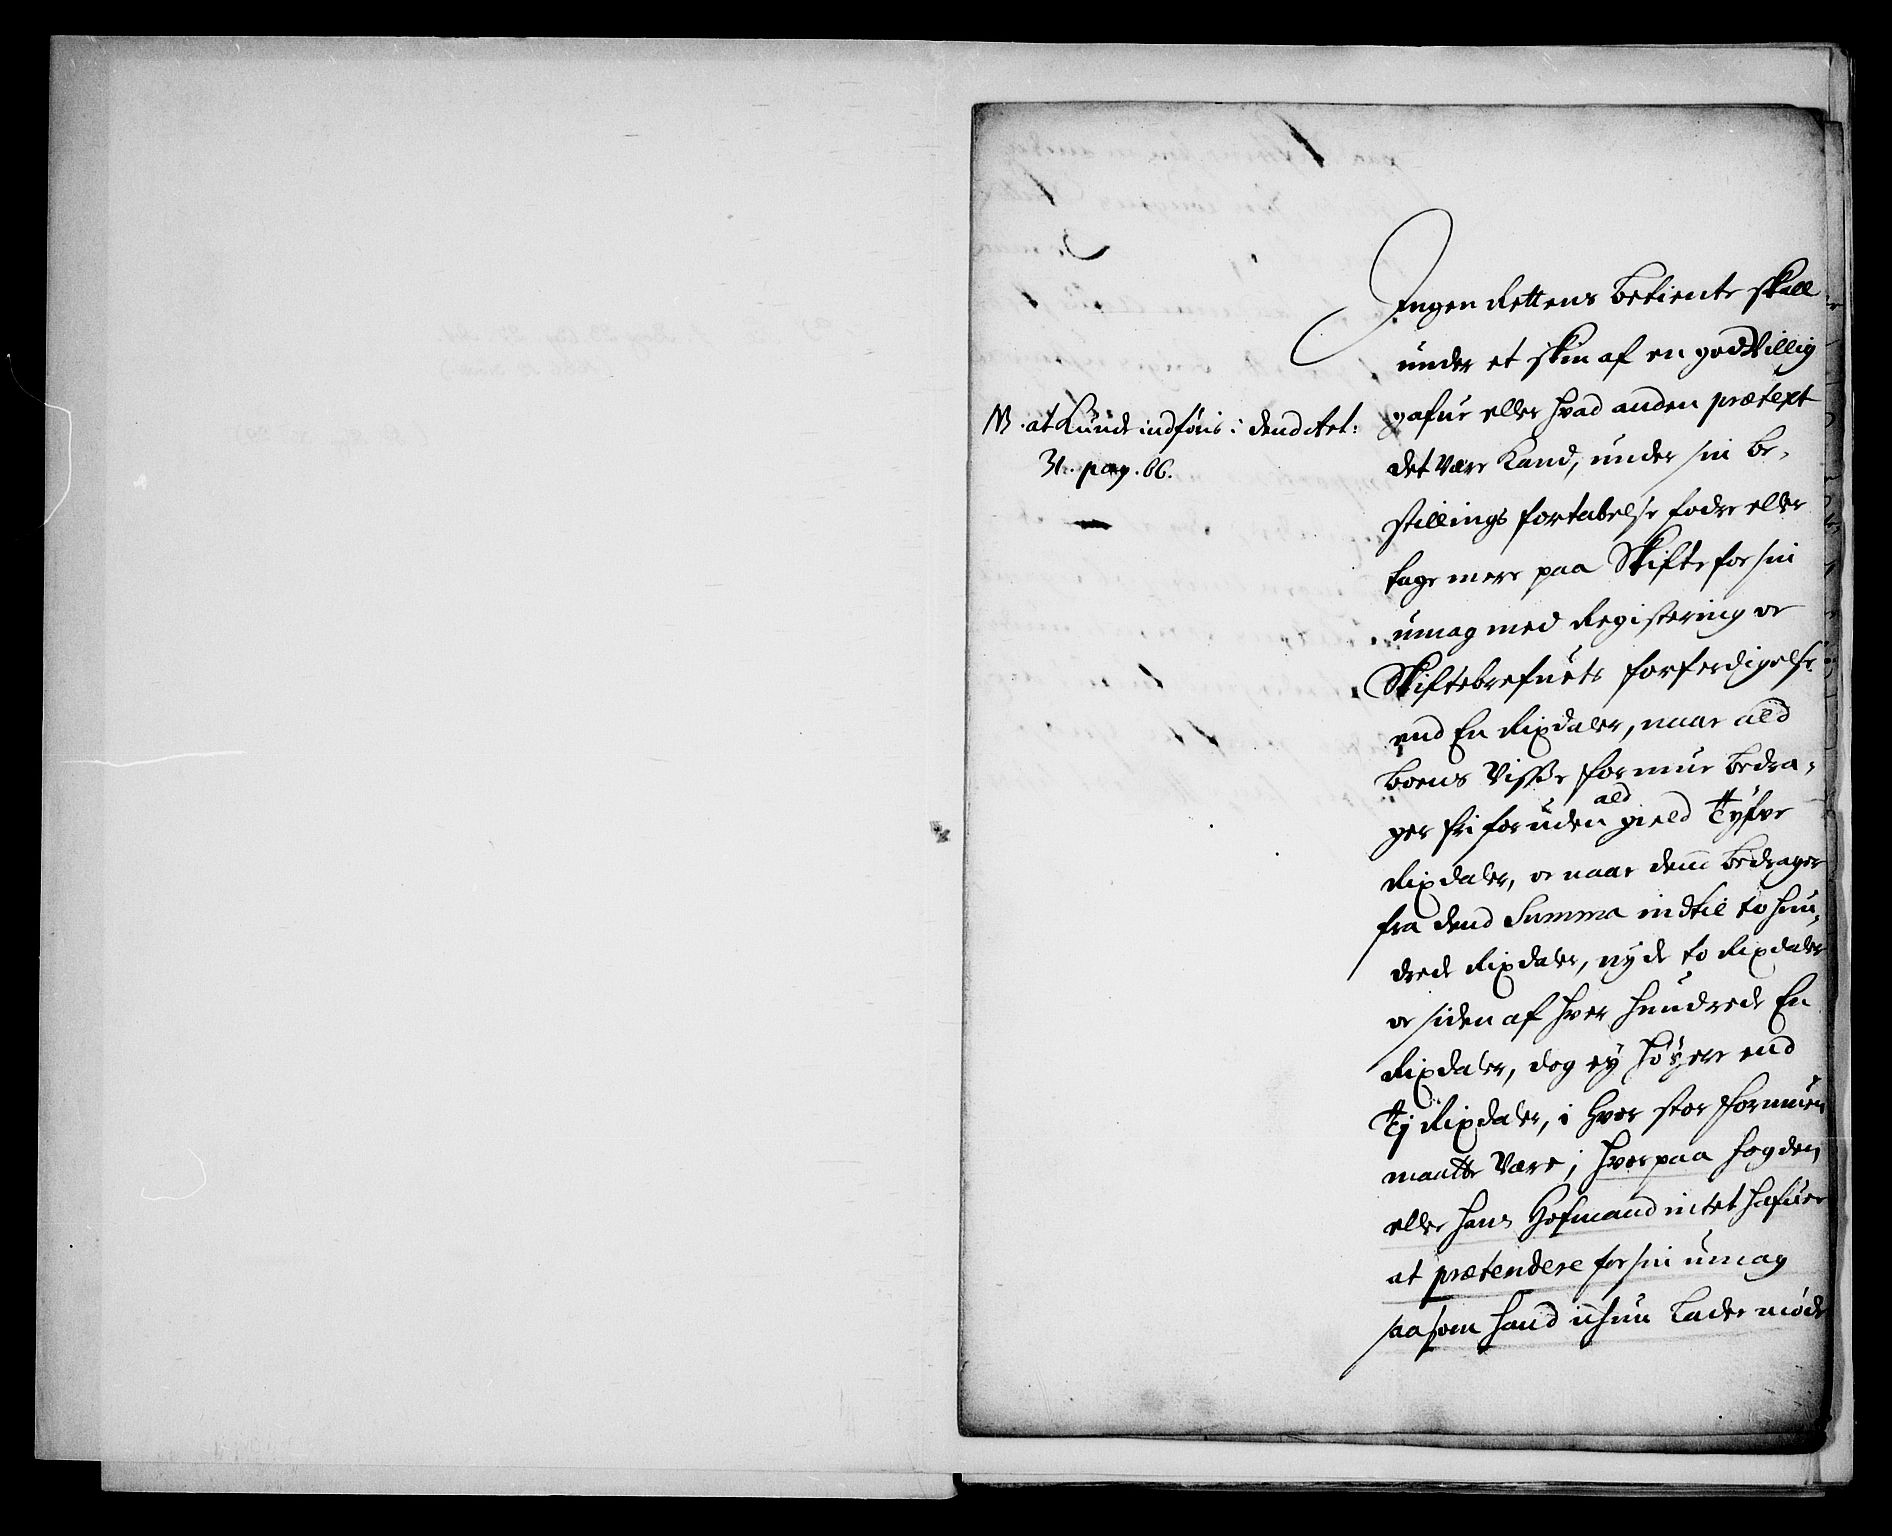 NB. at Kunde indføris i dend Art:
31. pag. 66.
Ingen Rettens betiente skall
under et skin af en godvillig
gafue eller hvad anden prætext
det være kand, under sin be-
stillings fortabelse fodre eller
tage mere paa Skifte for sin
umag med Registering oc
Skiftebrefuets forferdigelse
end En Rixdaler, naar ald
boens visse formue bedra-
ger sig foruden ald gield Tyfve
Rixdaler, oc naar dend bedrager
fra dend Summa indtil to hun-
drede Rixdaler, nyde to Rixdaler
oc siden af hver hundrede En
Rixdaler, dog ey høyere end
Tj Rixdaler, i hvor stor formuen
maatte være; hvorpaa fogden
eller hans hofmand intet hafuer
at prætendere for sin umag
saasom hand lader møde